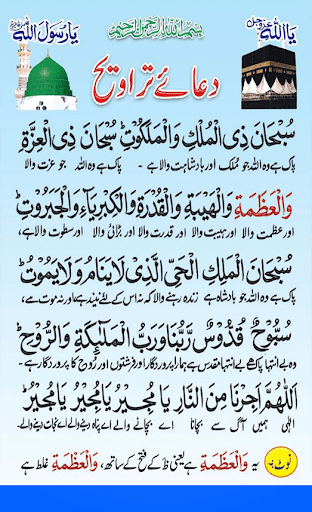 یا اللہ عزوجل
بسم الله الرحمن الرحيم
یا رسول اللہ
دعائے تراویح
سُبْحَانَ ذِی الْمُلْکِ وَالْمَلَکُوْتِ سُبْحَانَ ذِی الْعِزَّةِ
پاک ہے وہ اللہ جو مُلک اور بادشاہت والا ہے - پاک ہے وہ اللہ جو عزت والا
وَالْعَظَمَةِ وَالْهَيْبَةِ وَالْقُدْرَةِ وَالْکِبْرِيَآءِ وَالْجَبَرُوْتِ
اور عظمت والا اور ہیبت والا اور قدرت والا اور بڑائی والا اور سطوت والا ہے،
سُبْحَانَ الْمَلِکِ الْحَيِّ الَّذِیْ لَايَنَامُ وَلَايَمُوْتُ
پاک ہے وہ اللہ جو بادشاہ ہے زندہ رہنے والا کہ نہ اس کے لئے نیند ہے اور نہ موت ہے،
سُبُّوْحٌ قُدُّوْسٌ رَّبُّنَا وَرَبُّ الْمَلٰٓئِکَةِ وَالرُّوْحِ
وہ بے انتہا پاک ہے بے انتہا مقدس ہے ہمارا پروردگار اور فرشتوں اور رُوح کا پروردگار ہے۔
اَللّٰهُمَّ اَجِرْنَا مِنَ النَّارِ يَا مُجِيْرُ يَا مُجِيْرُ يَا مُجِيْرُ
الٰہی ہمیں آگ سے بچانا اے بچانے والے اے پناہ دینے والے اے نجات دینے والے۔
نوٹ:- یہ وَالْعَظَمَةِ ہے یعنی ظ کے فتح کے ساتھ، وَالْعَظْمَةِ غلط ہے